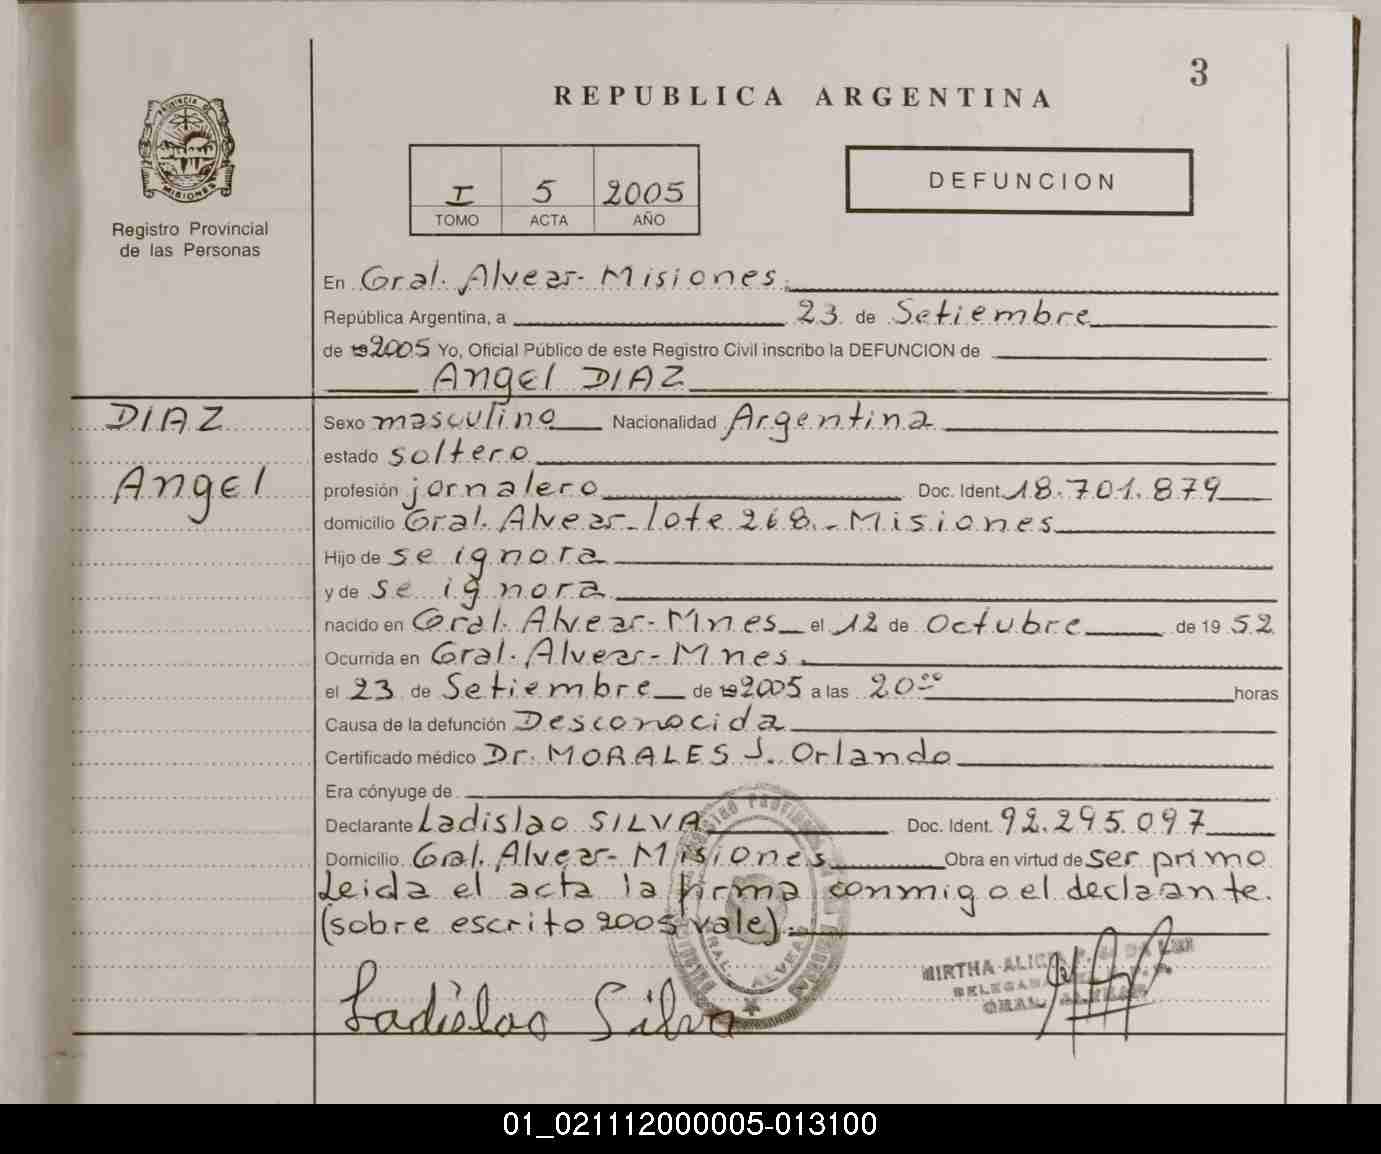 3
REPUBLICA ARGENTINA
PROVINCIA DE
MISIONES
Registro Provincial
de las Personas
I 5 2005
TOMO ACTA AÑO
DEFUNCION
En Gral. Alvear- Misiones.
República Argentina, a 23 de Setiembre
de 2005 Yo, Oficial Público de este Registro Civil inscribo la DEFUNCION de
Angel DIAZ
DIAZ
Angel
Sexo masculino Nacionalidad Argentina
estado soltero
profesión jornalero Doc. Ident. 18.701.879
domicilio Gral. Alvear-lote 268.-Misiones
Hijo de se ignora
y de se ignora
nacido en Gral. Alvear-Mnes el 12 de Octubre de 19 52
Ocurrida en Gral. Alvear-Mnes.
el 23 de Setiembre de 2005 a las 20⁰⁰ horas
Causa de la defunción Desconocida
Certificado médico Dr. MORALES J. Orlando
Era cónyuge de
Declarante Ladislao SILVA Doc. Ident. 92.295.097
Domicilio Gral. Alvear- Misiones Obra en virtud de ser primo
Leida el acta la firma conmigo el declaante.
(sobre escrito 2005 vale).
GRAL. ALVEAR
MIRTHA ALICIA
Ladislao Silva
01_021112000005-013100